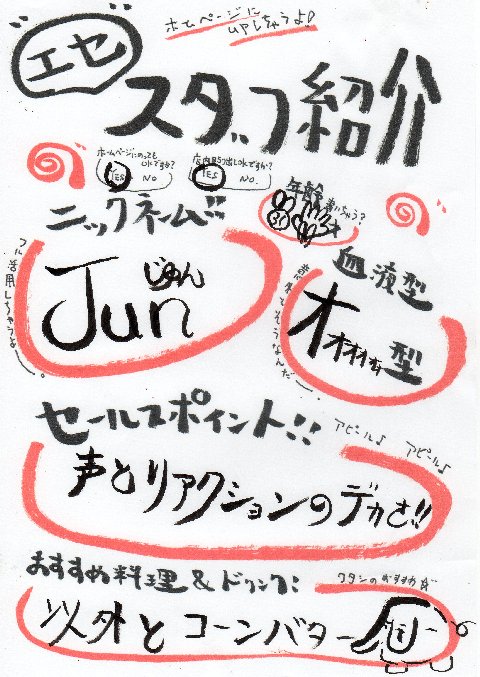 ホームページに
UPしちゃうよ!
エセ
スタッフ紹介
ホームページにのっても
OKですか?
YES NO
店内貼り出しOKですか?
YES NO.
ニックネーム!!
年齢
書いちゃう?
じゅん
Jun
フル活用しちゃうよー。
血液型
オオオオオ型
セールスポイント!!
アピール♪
アピール♪
声とリアクションのデカさ!!
おすすめ料理&ドリンク:
ワタシのおすすめ☆
以外とコーンバター